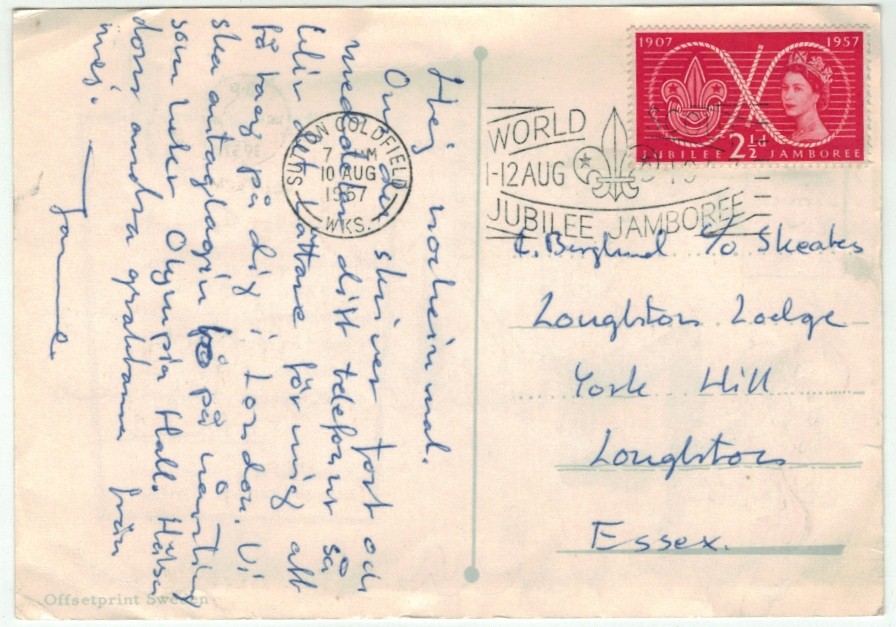 Hej nochein mal.
Om du skriver fort och
meddelar ditt telefonnr så
blir det lättare för mig att
få tag på dig i London. Vi
ska antagligen bo på nånting
som heter Olympia Hall. Hälsa
dom andra grabbarna från
mej.
Janne
SUTTON COLDFIELD
7 PM
10 AUG
1957
WKS.
WORLD
1-12 AUG
JUBILEE JAMBOREE
1907 1957
JUBILEE 2½d JAMBOREE
C. Berglund c/o Skeates
Loughton Lodge
York Hill
Loughton
Essex.
Offsetprint Sweden